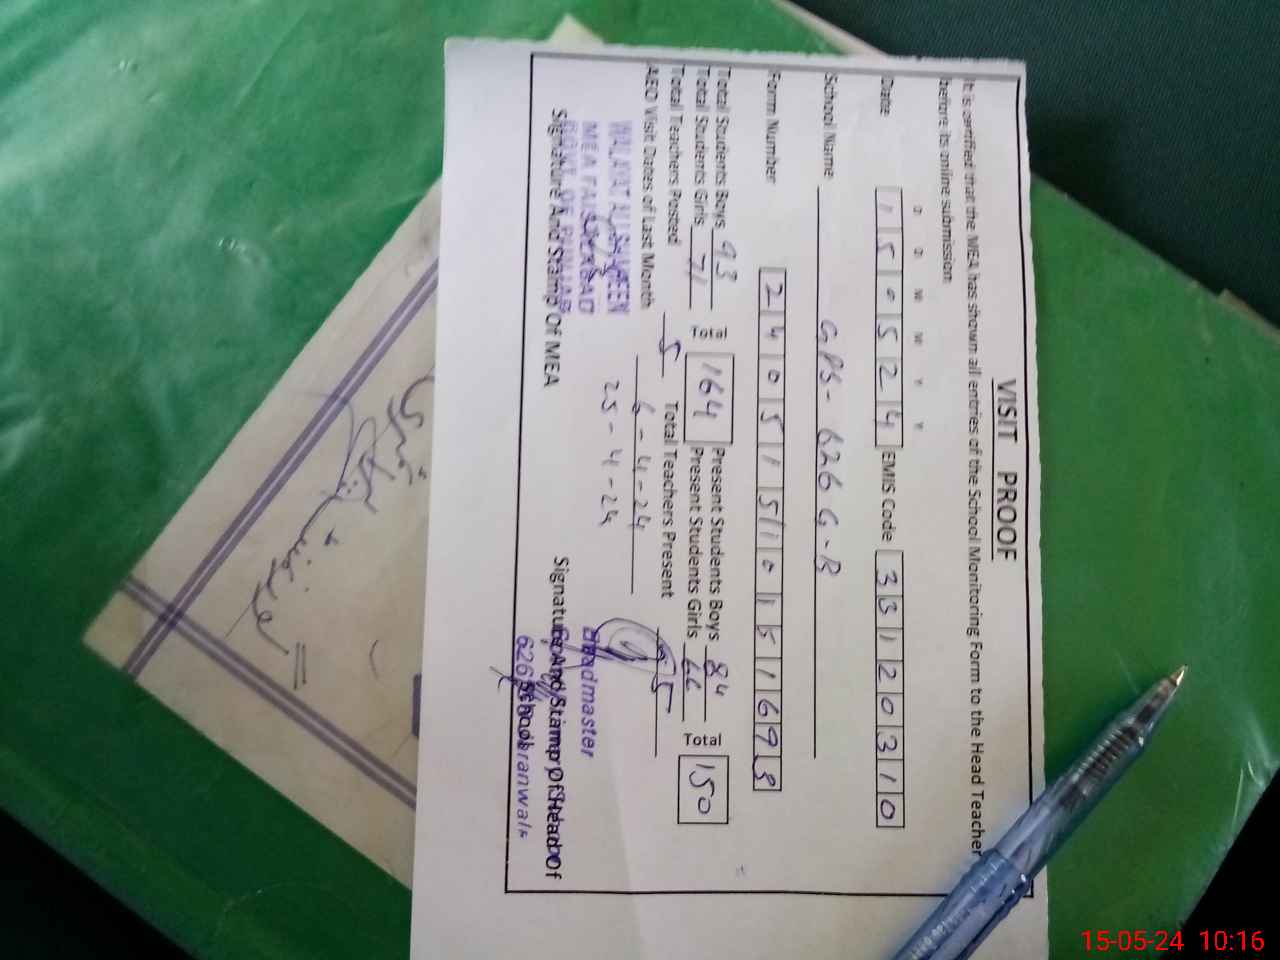 VISIT PROOF
It is certified that the MEA has shown all entries of the School Monitoring Form to the Head Teacher
before its online submission.
D D M M Y Y
Date 1 5 0 5 2 4 EMIS Code 3 3 1 2 0 3 1 0
School Name GPS- 626 G-B
Form Number 2 4 0 5 1 5 1 0 1 5 1 6 9 8
Total Students Boys 93 Total 164 Present Students Boys 84 Total 150
Total Students Girls 71 Present Students Girls 66
Total Teachers Posted 5 Total Teachers Present 5
AEO Visit Dates of Last Month 6-4-24
25-4-24
WALAYAT ALI SHAHEEN
MEA FAISALABAD
GOVT OF PUNJAB
Signature And Stamp Of MEA
Headmaster
Signature And Stamp Of Head Of
School
15-05-24 10:16